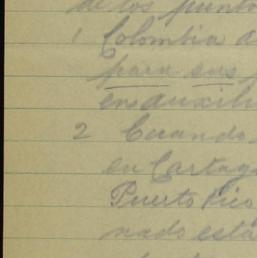 de los punto
1 Colombia d
para sus
en auxili
2 Cuando
en Cartag
Puerto Rico
nado está